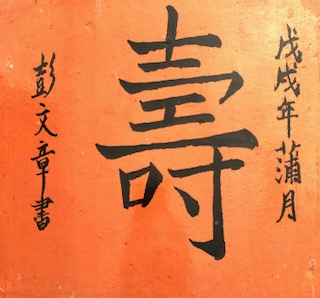 戊戌年蒲月
壽
彭文章書